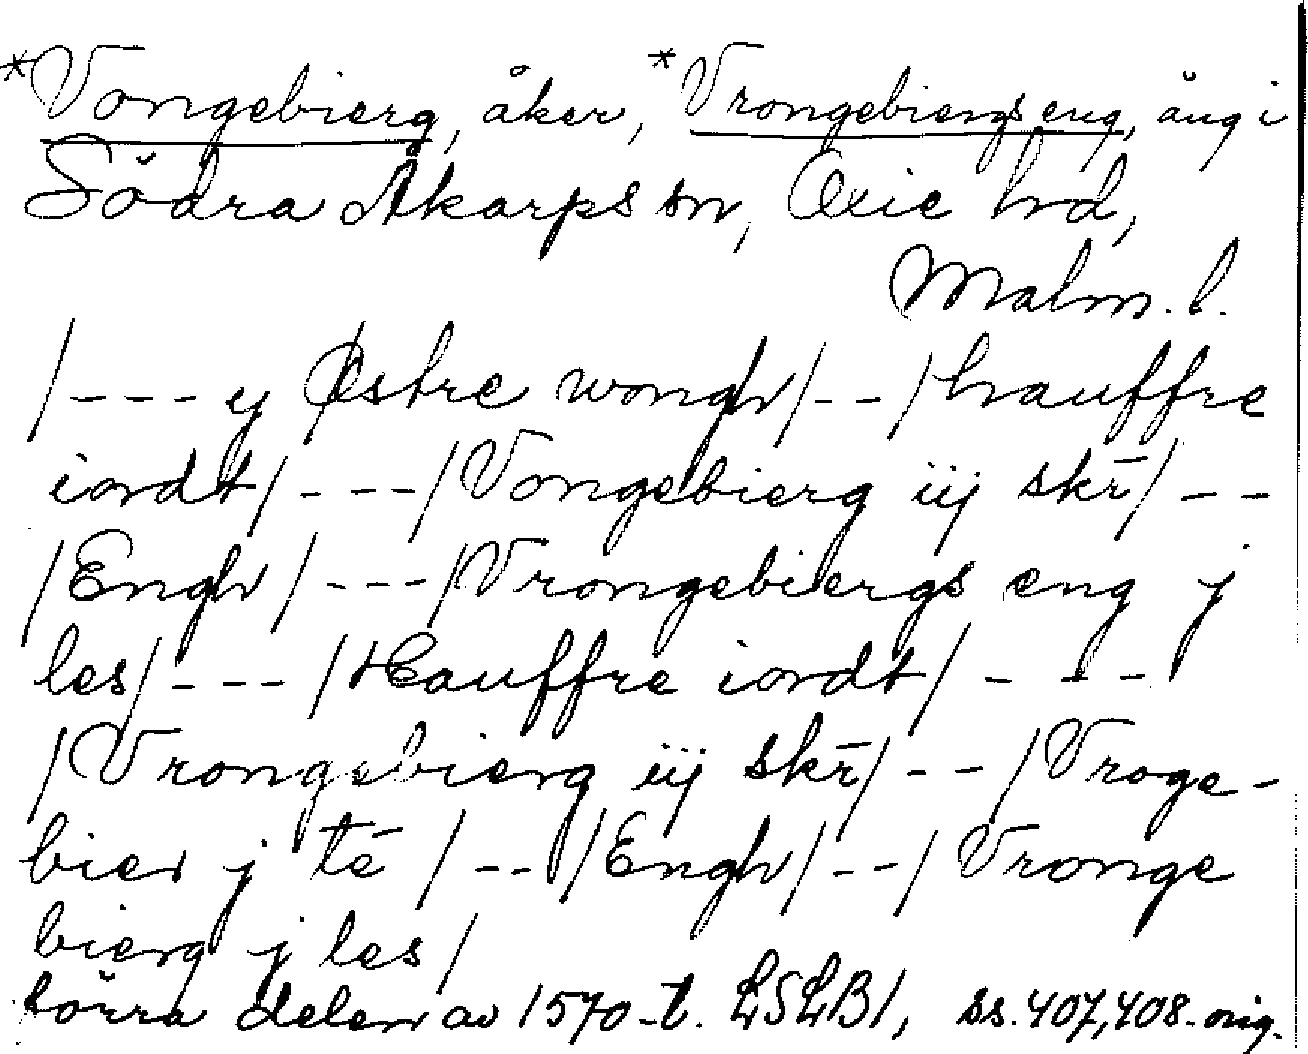 *Vongebierg, åker, *Vrongebiergs eng, äng i
Södra Åkarps sn, Oxie hd,
Malm. l.
/---y Østre wongh/--/hauffre
iordt/---/Vongebierg iij skr̄/--
/Engh/---/Vrongebiergs eng j
les/---/Hauffre iordt/---
/Vrongebierg iij skr̄/--/Vroge-
bier j té /--/Engh/--/Vronge
bierg j les/
förra delen av 1570-t. LSLB1, ss. 407, 408. orig.